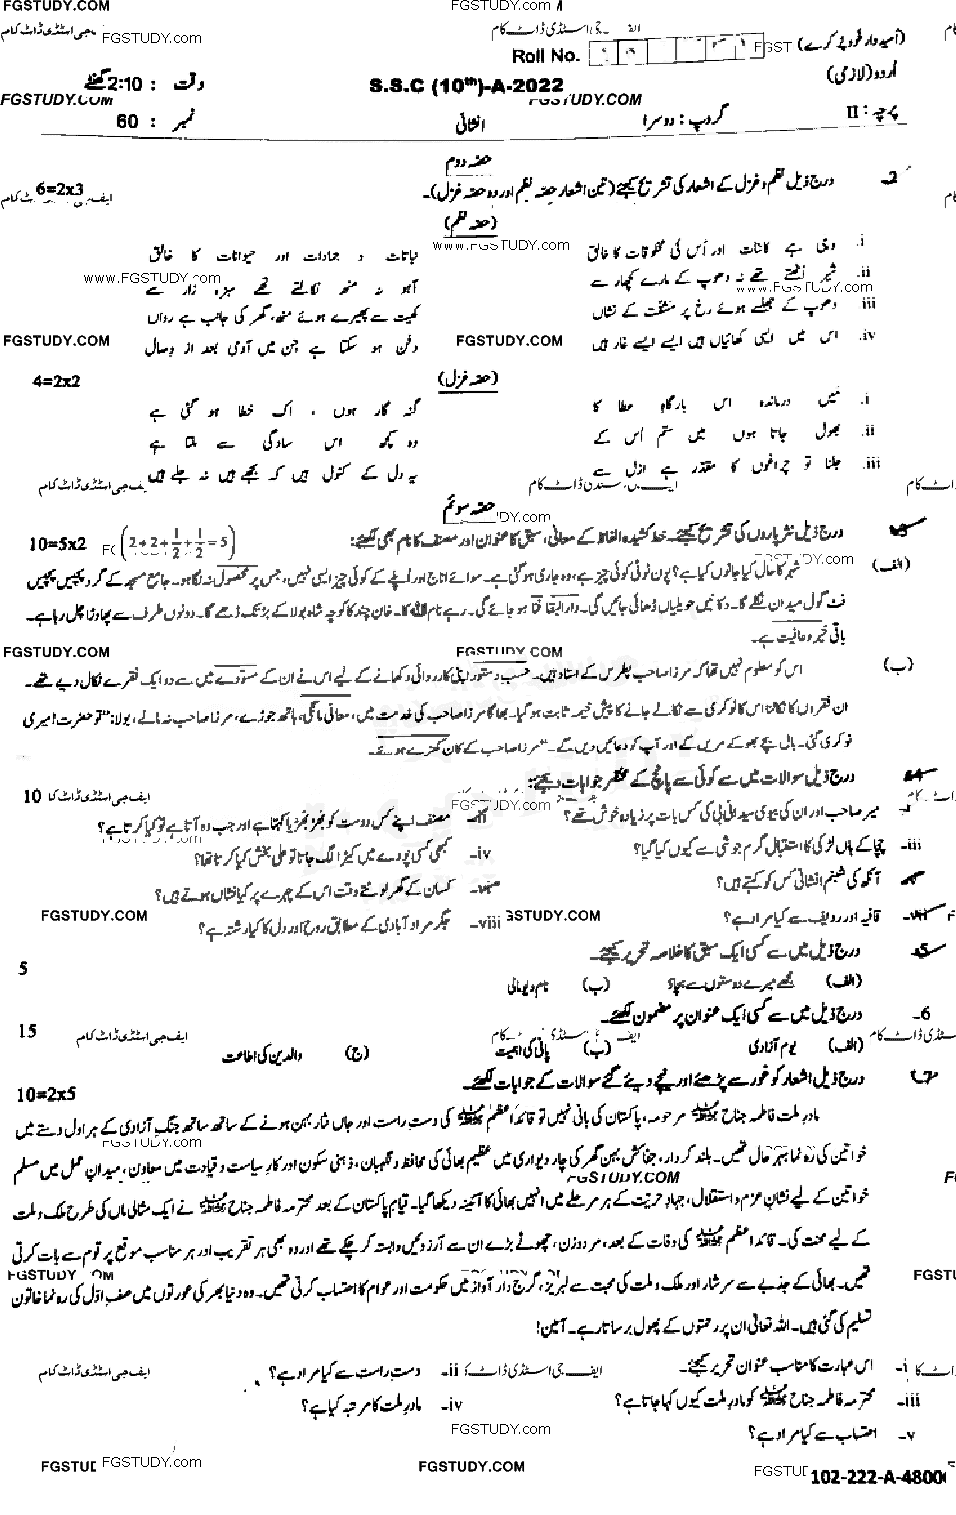 FGSTUDY.COM FGSTUDY.com
ایف جی اسٹڈی ڈاٹ کام FGSTUDY.com ایف جی اسٹڈی ڈاٹ کام (امیدوار خود پُر کرے) Roll No.
اُردو (لازمی) S.S.C (10th)-A-2022 وقت : 2:10 گھنٹے
FGSTUDY.COM FGSTUDY.COM
پرچہ : II گروپ : دوسرا انشائی نمبر : 60
حصہ دوم
2- درج ذیل نظم و غزل کے اشعار کی تشریح کیجئے (تین اشعار حصہ نظم اور دو حصہ غزل)۔ 6=2x3
(حصہ نظم)
i. وہی ہے کائنات اور اُس کی مخلوقات کا خالق نباتات و جمادات اور حیوانات کا خالق
www.FGSTUDY.COM www.FGSTUDY.com
ii. شیر اُٹھتے تھے نہ دھوپ کے مارے کچھار سے آہو نہ منہ نکالتے تھے سبزہ زار سے
www.FGSTUDY.COM
iii دھوپ کے جھلسے ہوئے رخ پر مشقت کے نشاں کھیت سے پھیرے ہوئے منھ، گھر کی جانب ہے رواں
iv. اس میں ایسی کھائیاں ہیں ایسے ایسے غار ہیں دفن ہو سکتا ہے جن میں آدمی بعد از وصال
FGSTUDY.COM FGSTUDY.COM
(حصہ غزل) 4=2x2
i. میں درماندہ اس بارگاہِ عطا کا گنہ گار ہوں ، اک خطا ہو گئی ہے
ii. بھول جاتا ہوں میں ستم اس کے وہ کچھ اس سادگی سے ملتا ہے
iii. جلنا تو چراغوں کا مقدر ہے ازل سے یہ دل کے کنول ہیں کہ بجھے ہیں نہ جلے ہیں
ایف جی اسٹڈی ڈاٹ کام ایف جی اسٹڈی ڈاٹ کام
حصہ سوئم
درج ذیل نثر پاروں کی تشریح کیجئے۔ خط کشیدہ الفاظ کے معانی، سبق کا عنوان اور مصنف کا نام بھی لکھئے: (2+2+1/2+1/2=5) 10=5x2
(الف) شہر کا حال کیا جانوں کیا ہے؟ پون ٹوٹی کوئی چیز ہے، وہ جاری ہو گئی ہے۔ سوائے اناج اور اُپلے کے کوئی چیز ایسی نہیں، جس پر محصول نہ لگا ہو۔ جامع مسجد کے گرد پچیس پچیس
فٹ گول میدان نکلے گا۔ دکانیں حویلیاں ڈھائی جائیں گی۔ دارالبقا فنا ہو جائے گی۔ رہے نام اللہ کا۔ خان چند کا کوچہ شاہ بولا کے بڑ تک ڈھے گا۔ دونوں طرف سے پھاوڑا چل رہا ہے۔
باقی خیر و عافیت ہے۔
FGSTUDY.COM FGSTUDY.COM
(ب) اس کو معلوم نہیں تھا کہ مرزا صاحب پطرس کے استاد ہیں۔ حسبِ دستور اپنی کارروائی دکھانے کے لیے اس نے ان کے مسوّدے میں سے دو ایک فقرے نکال دیے تھے۔
ان فقروں کا نکالنا اس کا نوکری سے نکالے جانے کا پیش خیمہ ثابت ہو گیا۔ بھاگا مرزا صاحب کی خدمت میں، معافی مانگی، ہاتھ جوڑے، مرزا صاحب نہ مانے، بولا: "تو حضرت! میری
نوکری گئی۔ بال بچے بھوکے مریں گے اور آپ کو دعائیں دیں گے۔" مرزا صاحب کے کان کھڑے ہوئے۔
درج ذیل سوالات میں سے کوئی سے پانچ کے مختصر جوابات دیجئے: 10
ایف جی اسٹڈی ڈاٹ کام FGSTUDY.com
میر صاحب اور ان کی بیوی سیدانی بی کس بات پر زیادہ خوش تھے؟ ii- مصنف اپنے کس دوست کو بھڑ بھڑیا کہتا ہے اور جب وہ آتا ہے تو کیا کرتا ہے؟
iii- چچا کے ہاں لڑکی کا استقبال گرم جوشی سے کیوں کیا گیا؟ iv- کبھی کسی پودے میں کیڑا لگ جاتا تو علی بخش کیا کرتا تھا؟
آنکھ کی شبنم افشانی کس کو کہتے ہیں؟ کسان کے گھر لوٹتے وقت اس کے چہرے پر کیا نشاں ہوتے ہیں؟
vii- قافیہ اور ردیف سے کیا مراد ہے؟ viii- جگر مراد آبادی کے مطابق روح اور دل کا کیا رشتہ ہے؟
FGSTUDY.COM FGSTUDY.COM
5- درج ذیل میں سے کسی ایک سبق کا خلاصہ تحریر کیجئے۔ 5
(الف) مجھے میرے دوستوں سے بچاؤ (ب) نام دیو مالی
6- درج ذیل میں سے کسی ایک عنوان پر مضمون لکھئے۔ 15
(الف) یومِ آزادی (ب) پانی کی اہمیت (ج) والدین کی اطاعت
ایف جی اسٹڈی ڈاٹ کام
7- درج ذیل اشعار کو غور سے پڑھئے اور نیچے دیئے گئے سوالات کے جوابات لکھئے۔ 10=2x5
مادرِ ملت فاطمہ جناح مرحومہ، پاکستان کی بانی نہیں تو قائداعظم کی دستِ راست اور جاں نثار بہن ہونے کے ساتھ ساتھ جنگِ آزادی کے ہر اول دستے میں
خواتین کی رہ نما بہرحال تھیں۔ بلند کردار، جفاکش بہن گھر کی چار دیواری میں عظیم بھائی کی محافظ و نگہبان، ذہنی سکون اور کارِ سیاست و قیادت میں معاون، میدانِ عمل میں مسلم
FGSTUDY.COM
خواتین کے لیے نشانِ عزم و استقلال، جہادِ حریت کے ہر مرحلے میں انہیں بھائی کا آئینہ دیکھا گیا۔ قیامِ پاکستان کے بعد محترمہ فاطمہ جناح نے ایک مثالی ماں کی طرح ملک و ملت
کے لیے محنت کی۔ قائداعظم کی وفات کے بعد، مرد و زن، چھوٹے بڑے ان سے آرزوئیں وابستہ کر چکے تھے اور وہ بھی ہر تقریب اور ہر مناسب موقع پر قوم سے بات کرتی
تھیں۔ بھائی کے جذبے سے سرشار اور ملک و ملت کی محبت سے لبریز، گرج دار آواز میں حکومت اور عوام کا احتساب کرتی تھیں۔ وہ دنیا بھر کی عورتوں میں صفِ اوّل کی رہ نما خاتون
تسلیم کی گئی ہیں۔ اللہ تعالیٰ ان پر رحمتوں کے پھول برساتا رہے۔ آمین!
i- اس عبارت کا مناسب عنوان تحریر کیجئے۔ ii- دستِ راست سے کیا مراد ہے؟
iii- محترمہ فاطمہ جناح کو مادرِ ملت کیوں کہا جاتا ہے؟ iv- مادرِ ملت کا مرتبہ کیا ہے؟
v- احتساب سے کیا مراد ہے؟
FGSTUDY.com
FGSTUDY.com FGSTUDY.COM 102-222-A-48000